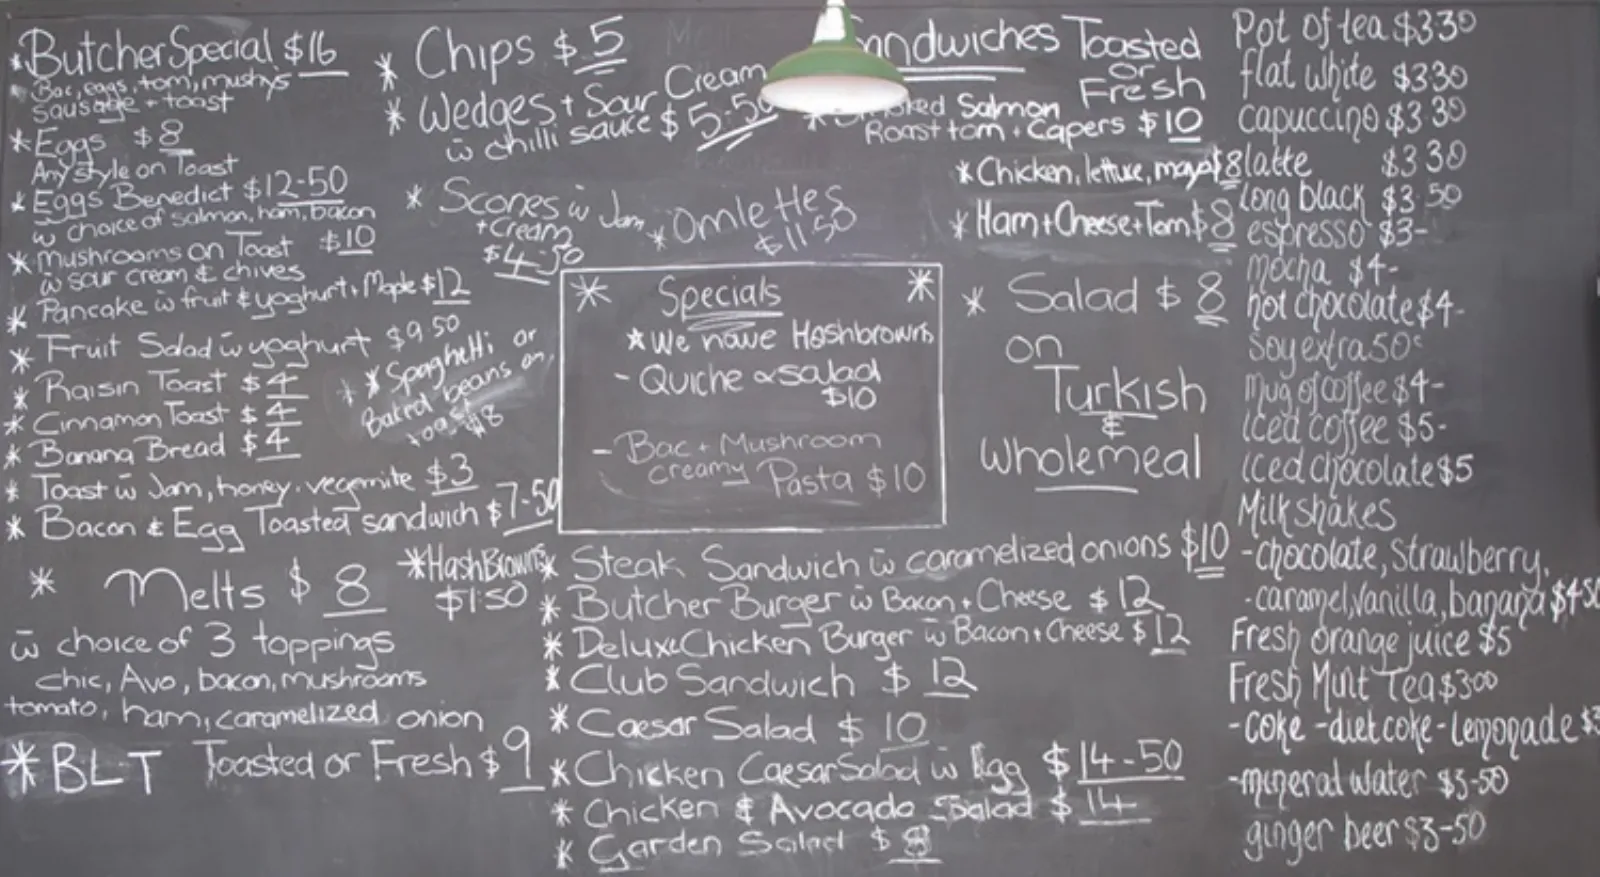 * Butcher Special $16
* Bac, eggs, tom, mushy's
sausage + toast
* Eggs $8
Any style on Toast
* Eggs Benedict $12-50
w̄ choice of salmon, ham, bacon
* Mushrooms on Toast $10
w̄ sour cream & chives
* Pancake w̄ fruit & yoghurt + Maple $12
* Fruit Salad w̄ yoghurt $9.50
* Raisin Toast $4
* Cinnamon Toast $4
* Banana Bread $4
* * Spaghetti or
Baked beans on
toast
$8
* Toast w̄ Jam, honey, vegemite $3
* Bacon & Egg Toasted sandwich $7-50
* Melts $8
w̄ choice of 3 toppings
chic, Avo, bacon, mushrooms
tomato, ham, caramelized onion
* HashBrowns
$1.50
* BLT Toasted or Fresh $9
* Chips $5
* Wedges + Sour Cream
w̄ chilli sauce $5-50
* Scones w̄ Jam
+ Cream
$4-50
* Omlettes
$11 50
* Specials *
* We have Hashbrowns
- Quiche & salad
$10
- Bac + Mushroom
creamy Pasta $10
* Steak Sandwich w̄ caramelized onions $10
* Butcher Burger w̄ Bacon + Cheese $12
* Deluxe Chicken Burger w̄ Bacon + Cheese $12
* Club Sandwich $12
* Caesar Salad $10
* Chicken Caesar Salad w̄ Egg $14-50
* Chicken & Avocado Salad $14
* Garden Salad $8
andwiches Toasted
or
Fresh
* Smoked Salmon
Roast tom + Capers $10
* Chicken, lettuce, mayo $8
* Ham + Cheese + Tom $8
* Salad $8
on
Turkish
&
wholemeal
Pot of tea $3 30
flat white $3 30
capuccino $3 30
latte $3 30
long black $3.50
espresso $3-
mocha $4-
hot chocolate $4-
Soy extra 50c
mug of coffee $4-
iced coffee $5-
iced chocolate $5
Milkshakes
- chocolate, Strawberry,
- caramel, vanilla, banana $4 50
Fresh orange juice $5
Fresh Mint Tea $3 00
- coke - diet coke - Lemonade $3
- mineral water $3-50
ginger beer $3-50